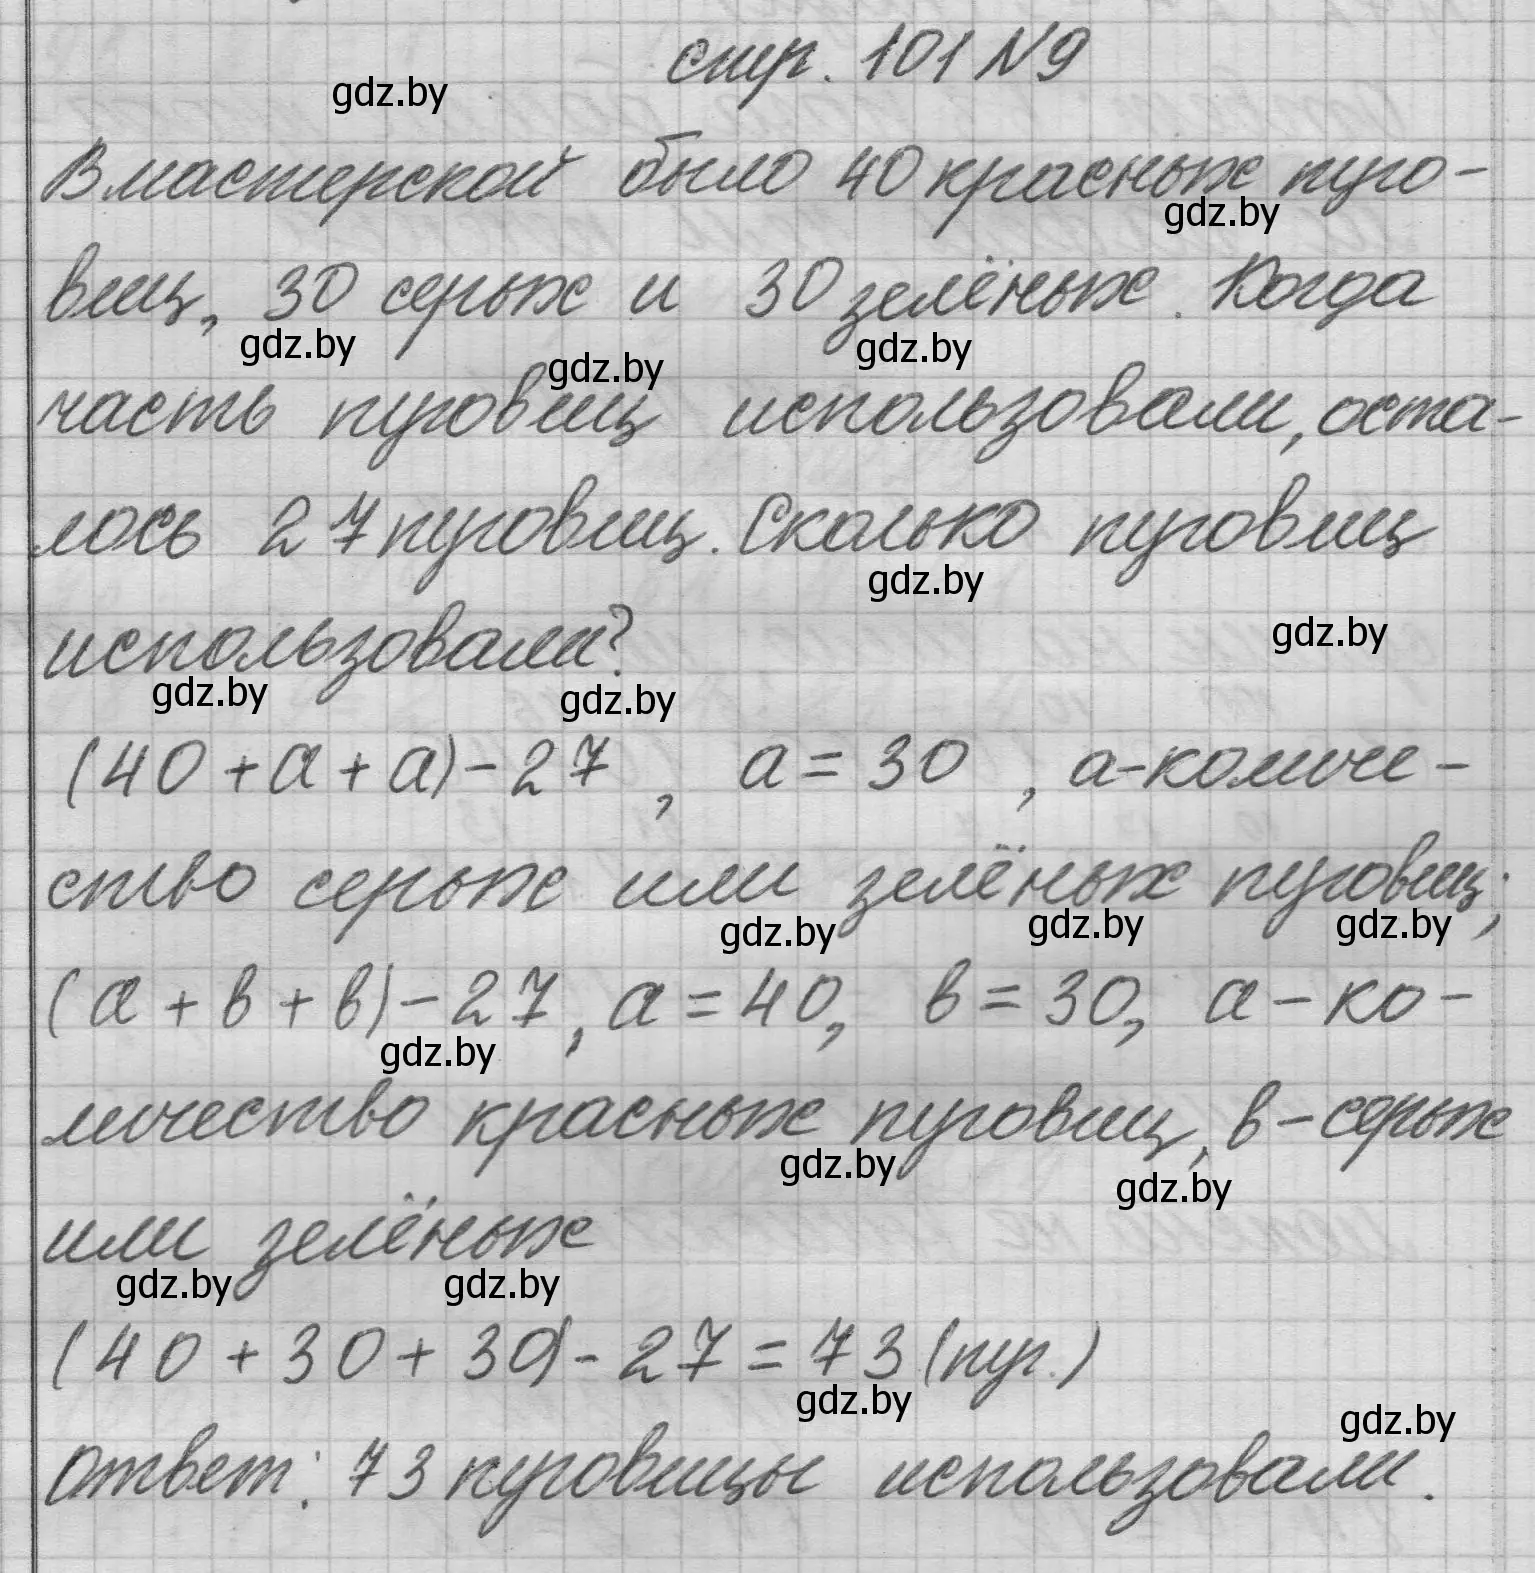 стр. 101 №9
gdz.by
В мастерской было 40 красных пуго-
gdz.by
виц, 30 серых и 30 зелёных. Когда
gdz.by gdz.by gdz.by
часть пуговиц использовали, оста-
лось 27 пуговиц. Сколько пуговиц
gdz.by
использовали?
gdz.by
gdz.by gdz.by
(40 + а + а) - 27, а = 30, а - количе-
ство серых или зелёных пуговиц;
gdz.by gdz.by gdz.by
(а + в + в) - 27, а = 40, в = 30, а - ко-
gdz.by
личество красных пуговиц, в - серых
gdz.by gdz.by
или зелёных
gdz.by gdz.by
(40 + 30 + 30) - 27 = 73 (пуг.)
gdz.by gdz.by
Ответ: 73 пуговицы использовали.